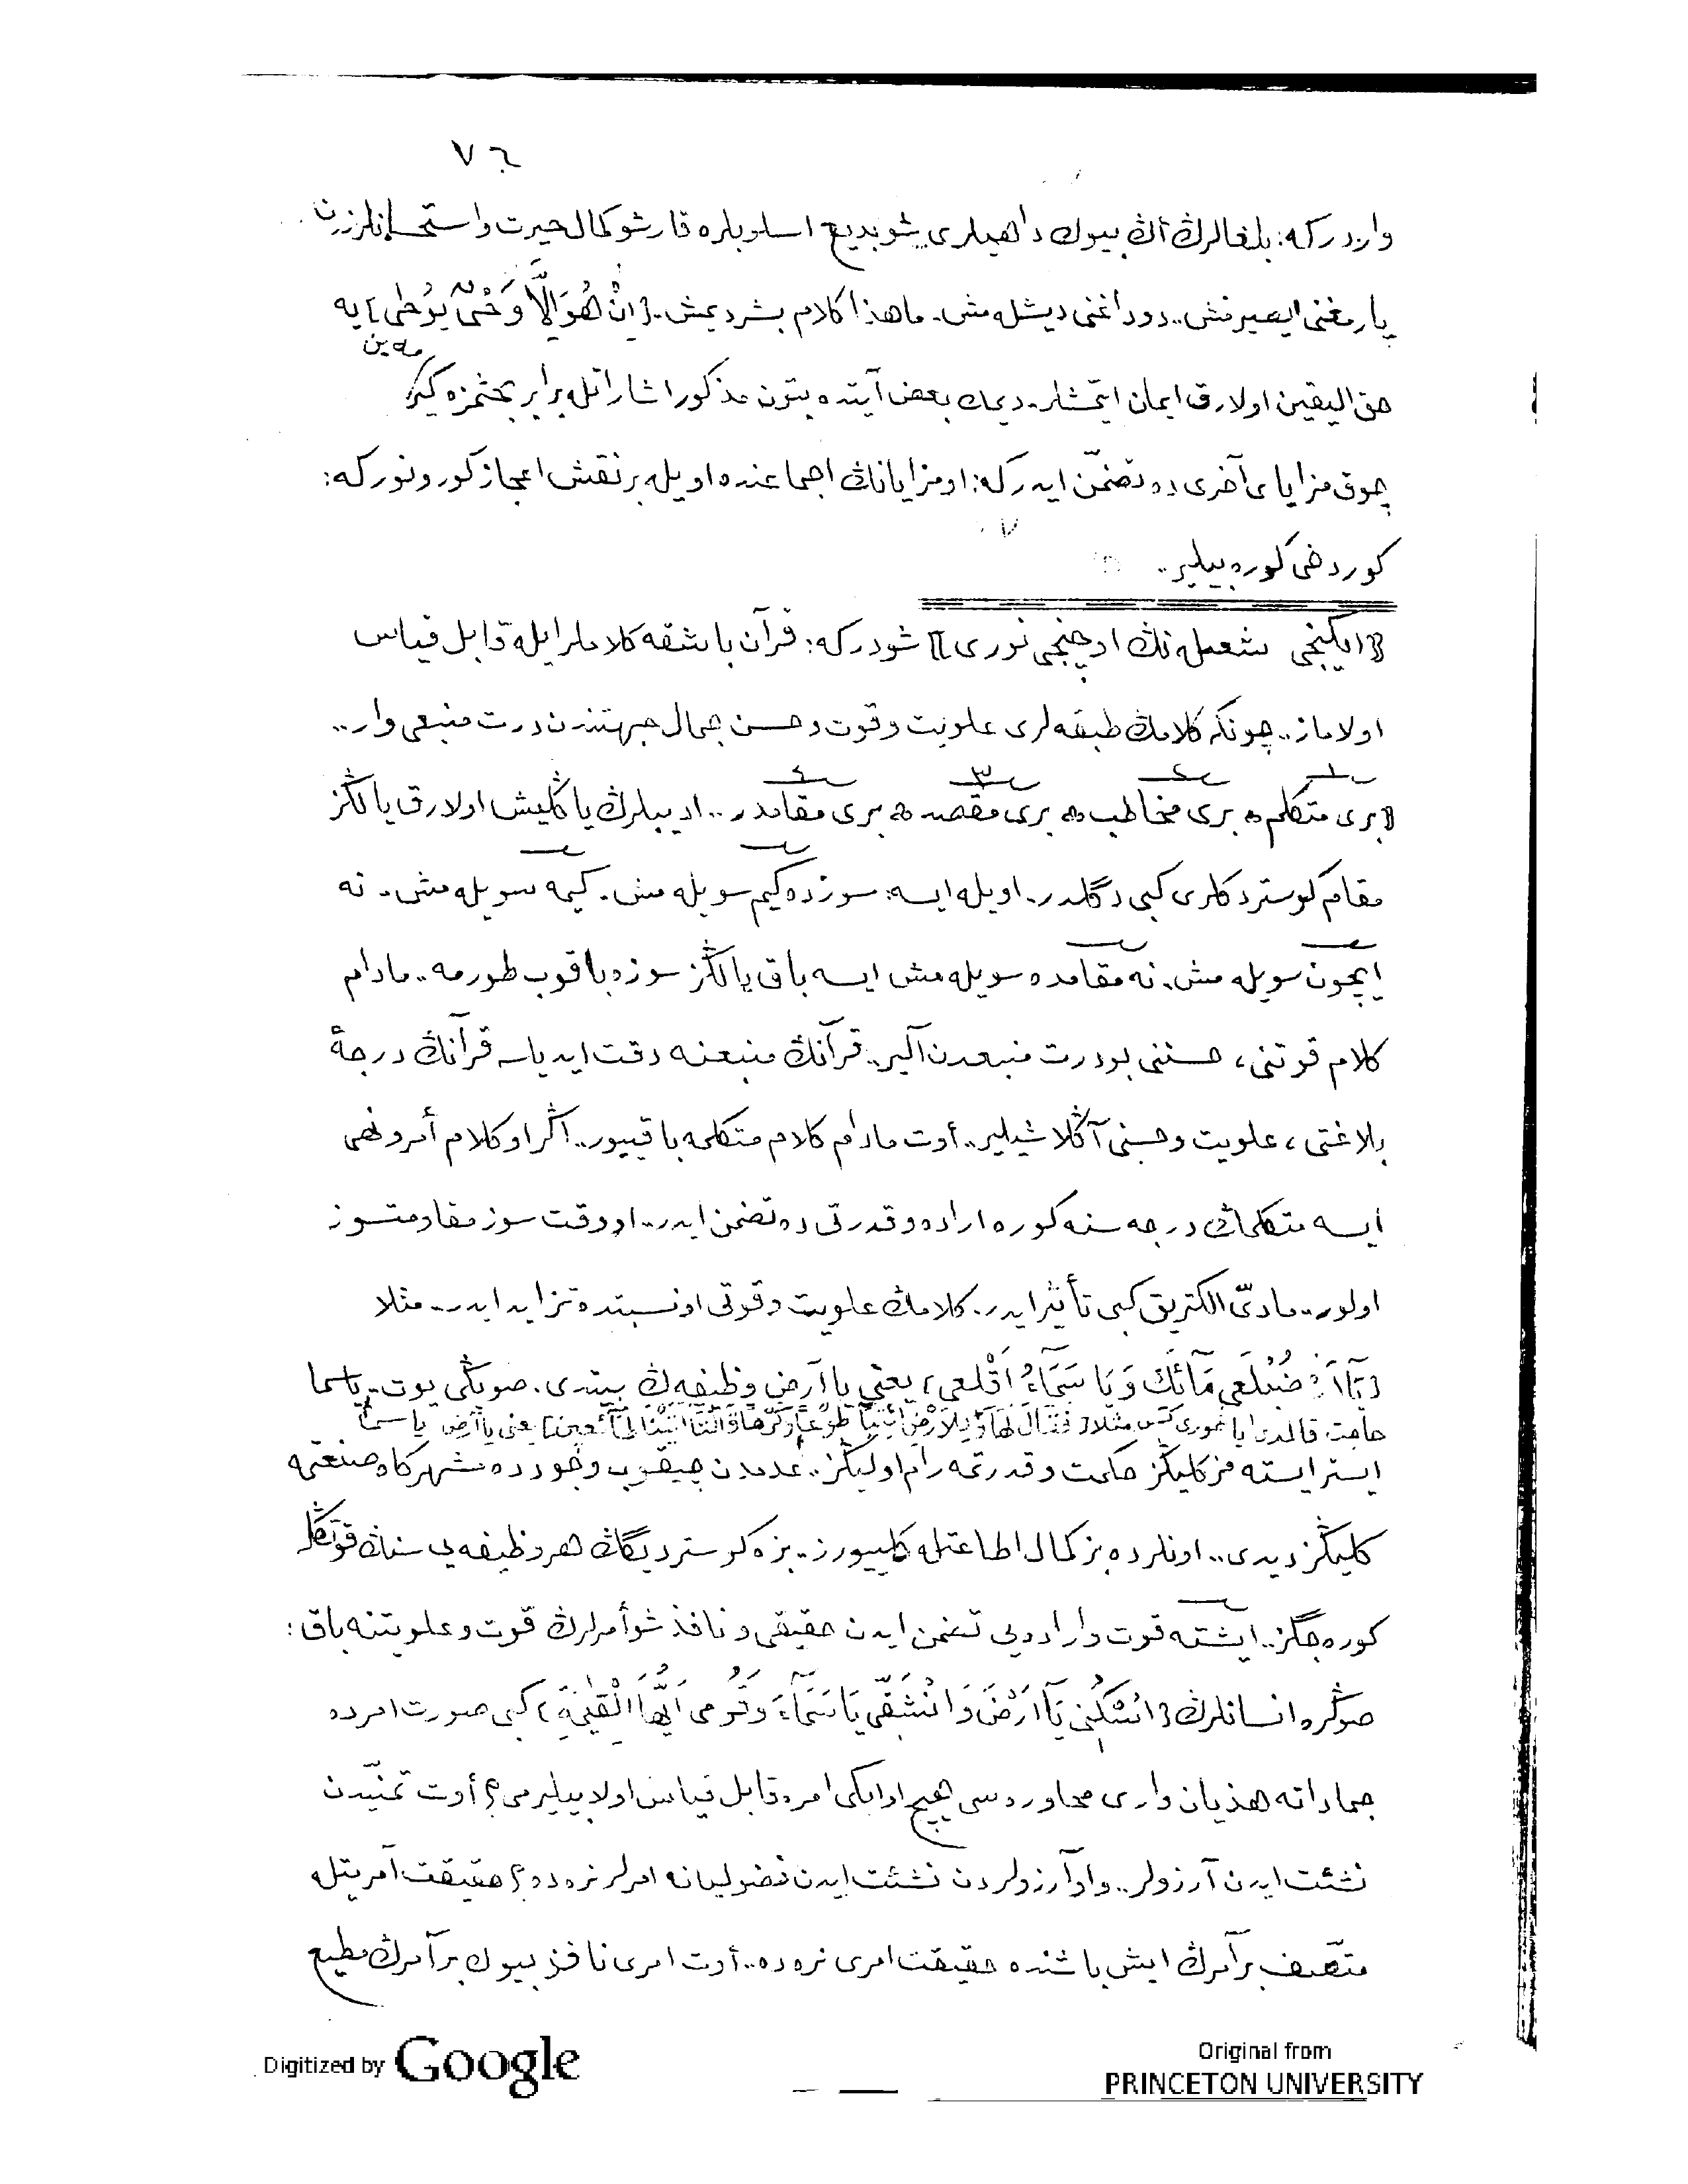 ٧٦
واردركه: بلغالرڭ أڭ بيوك داهيلرى شو بديع اسلوبلره قارشو كمال حيرت واستحسانلرندن
پارمغنى ايصيرمش.. دوداغنى ديشله مش. ماهذا كلام بشر ديمش. {اِنْ هُوَ اِلَّا وَحْىٌ يُوحٰى} يه
حق اليقين اولارق ايمان ايتمشلر. ديمك بعض آيتده بتون مذكور اشاراتله برابر بحثمزه كيرمه ين
چوق مزاياى آخرى ده تضمّن ايدركه: او مزايانڭ اجماعنده اويله بر نقش اعجاز كورونوركه:
كور دخى كوره بيلير..
{{ايكنجى شعله نڭ اوچنجى نورى}} شودركه: قرآن باشقه كلاملر ايله قابل قياس
اولاماز.. چونكه كلامڭ طبقه لرى علويت وقوت وحسن جمال جهتندن درت منبعى وار..
{برى متكلم، برى مخاطب، برى مقصد، برى مقامدر.. اديبلرڭ ياڭليش اولارق يالڭز
١ ٢ ٣ ٤
مقام كوستردكلرى كبى دگلدر. اويله ايسه: سوزده كيم سويله مش. كيمه سويله مش. نه
ايچون سويله مش. نه مقامده سويله مش ايسه باق يالڭز سوزه باقوب طورمه.. مادام
كلام قوتنى، حسننى بو درت منبعدن آلير.. قرآنڭ منبعنه دقت ايديلسه قرآنڭ درجۀ
بلاغتى، علويت وحسنى آڭلاشيلير.. أوت مادام كلام متكلمه باقييور.. اڭر او كلام أمر ونهى
ايسه متكلمڭ درجه سنه كوره اراده وقدرتى ده تضمن ايدر.. او وقت سوز مقاومتسوز
اولور.. مادىّ الكتريق كبى تأثير ايدر. كلامڭ علويت وقوتى او نسبتده تزايد ايدر.. مثلا
{يَٓا اَرْضُ ابْلَعِى مَٓائَكِ وَ يَا سَمَٓاءُ اَقْلِعِى} يعنى يا أرض وظيفه ڭ بيتدى. صويڭى يوت.. ياسما
حاجت قالمدى ياغمورى كس. مثلا: {فَقَالَ لَهَا وَلِلْاَرْضِ ائْتِيَا طَوْعًا اَوْ كَرْهًا قَالَتَٓا اَتَيْنَا طَٓائِعِينَ} يعنى يا أرض ياسما
ايستر ايسته مز كليڭز حكمت وقدرتمه رام اوليڭز.. عدمدن چيقوب وجودده مشهركاه صنعتمه
كليڭز ديدى.. اونلرده بز كمال اطاعتله كلييورز.. بزه كوسترديگڭ هر وظيفه يى سنڭ قوتڭله
كوره جگز.. ايشته قوت واراده يى تضمن ايدن حقيقى ونافذ شو أمرلرڭ قوت وعلويتنه باق:
صوڭره انسانلرڭ {اُسْكُنِى يَٓا اَرْضُ وَانْشَقِّى يَا سَمَٓاءُ وَقُومِى اَيَّتُهَا الْقِيٰمَةُ} كبى صورت امرده
جماداته هذيان وارى محاوره سى هيچ او ايكى امره قابل قياس اولا بيليرمى؟ أوت تمنّيدن
نشئت ايدن آرزولر.. واو آرزولردن نشئت ايدن فضوليانه امرلر نره ده؟ حقيقت آمريتله
متّصف بر آمرڭ ايش باشنده حقيقت امرى نره ده.. أوت امرى نافذ بيوك بر آمرڭ مطيع
Digitized by Google
Original from
PRINCETON UNIVERSITY